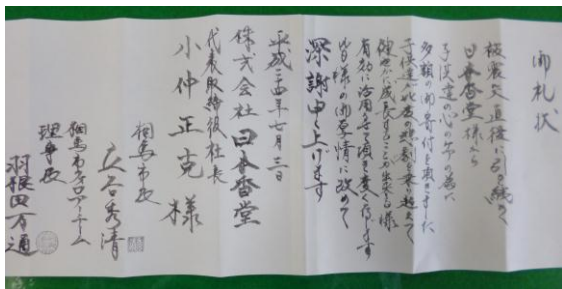 御礼状
被災直後に引き続き
日本香堂様から
子供達の心のケアの為に
多額の御寄付を戴きました
子供達が此度の悲劇を乗り越えて
健やかに成長することが出来る様
有効に活用させて頂く
皆様の御厚情に改めて
深謝申し上げます
平成二四年七月三日
株式会社 日本香堂
代表取締役社長
小仲正克 様
相馬市長
立谷秀清
相馬フォロアーチーム
理事長
羽根田万通